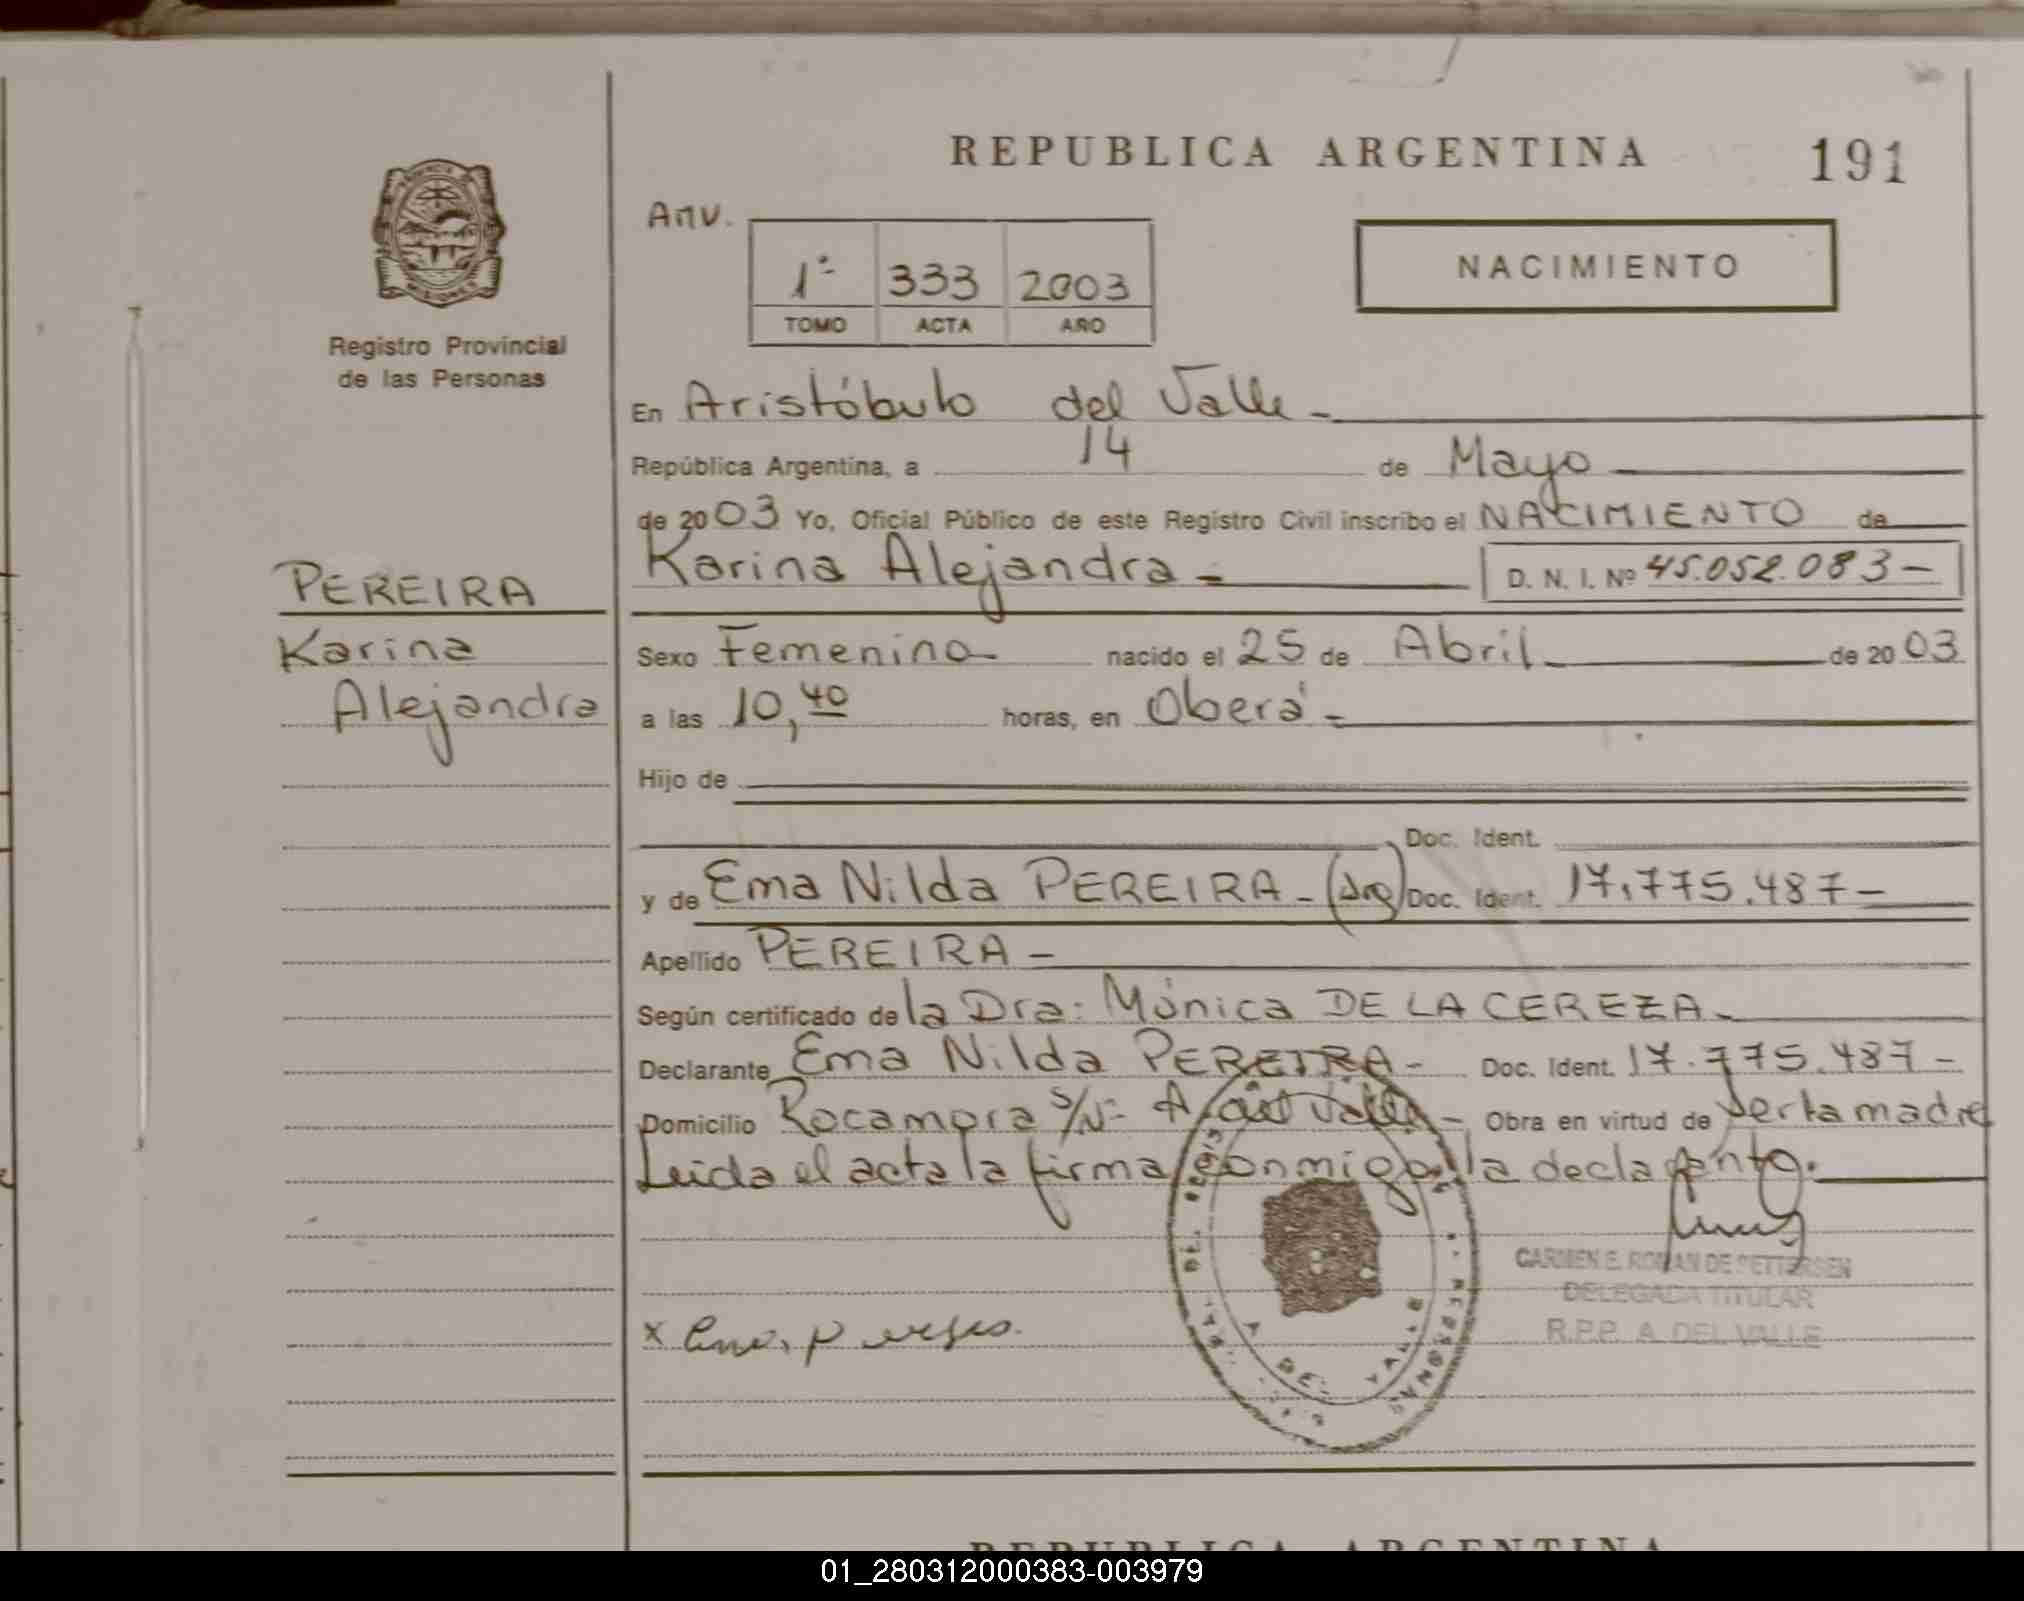 REPUBLICA ARGENTINA
191
MISIONES
Registro Provincial
de las Personas
Anv.
1º 333 2003
TOMO ACTA AÑO
NACIMIENTO
En Aristóbulo del Valle -
República Argentina, a 14 de Mayo
de 2003 Yo, Oficial Público de este Registro Civil inscribo el NACIMIENTO de
Karina Alejandra - D. N. I. Nº 45.052.083 -
PEREIRA
Karina
Alejandra
Sexo Femenino - nacido el 25 de Abril - de 2003
a las 10,40 horas, en Oberá -
Hijo de
Doc. Ident.
y de Ema Nilda PEREIRA - Doc. Ident. 17.775.487 -
Apellido PEREIRA -
Según certificado de la Dra: Mónica DE LA CEREZA -
Declarante Ema Nilda PEREIRA - Doc. Ident. 17.775.487 -
Domicilio Rocamora s/Nº A. del Valle - Obra en virtud de ser la madre
Leida el acta la firma conmigo la declarante.
CARMEN E. ROMAN DE PETTERSEN
DELEGADA TITULAR
R.P.P. A. DEL VALLE
A. DEL VALLE
x
REPUBLICA ARGENTINA
01_280312000383-003979